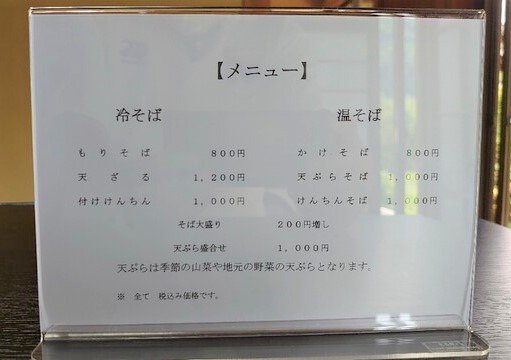 【メニュー】
冷そば 温そば
もりそば 800円 かけそば 800円
天ざる 1,200円 天ぷらそば 1,000円
付けけんちん 1,000円 けんちんそば 1,000円
そば大盛り 200円増し
天ぷら盛合せ 1,000円
天ぷらは季節の山菜や地元の野菜の天ぷらとなります。
※ 全て 税込み価格です。